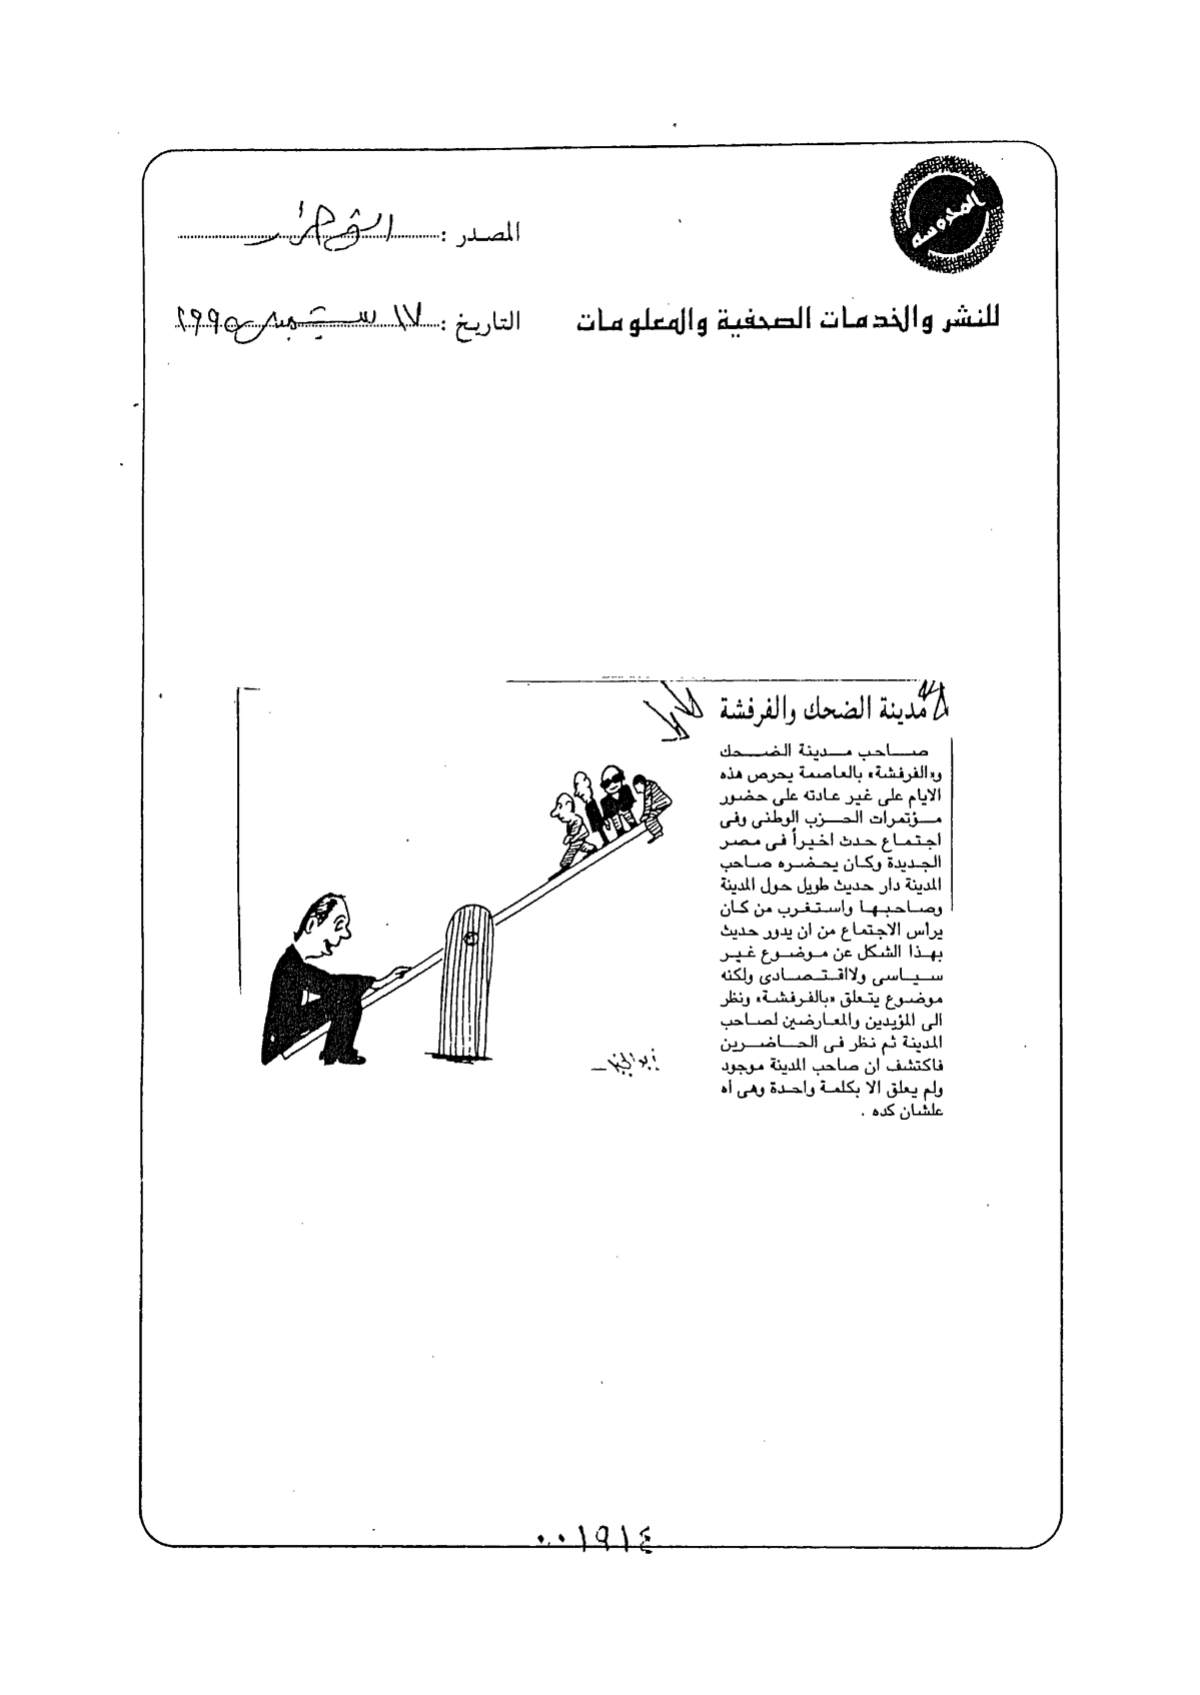 المحروسة
المصدر :
للنشر والخدمات الصحفية والمعلومات
التاريخ : ١٧ سبتمبر ١٩٩٥
مدينة الضحك والفرفشة
صاحب مدينة الضحك
و«الفرفشة» بالعاصمة يحرص هذه
الايام على غير عادته على حضور
مؤتمرات الحزب الوطنى وفى
اجتماع حدث اخيراً فى مصر
الجديدة وكان يحضره صاحب
المدينة دار حديث طويل حول المدينة
وصاحبها واستغرب من كان
يرأس الاجتماع من ان يدور حديث
بهذا الشكل عن موضوع غير
سياسى ولااقتصادى ولكنه
موضوع يتعلق «بالفرفشة» ونظر
الى المؤيدين والمعارضين لصاحب
المدينة ثم نظر فى الحاضرين
فاكتشف ان صاحب المدينة موجود
ولم يعلق الا بكلمة واحدة وهى أه
علشان كده .
٠٠١٩١٤